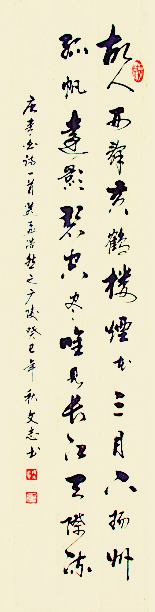 故人西辞黄鹤楼烟花三月下扬州
孤帆远影碧空尽唯见长江天际流
唐李白诗一首送孟浩然之广陵癸巳年秋文志书